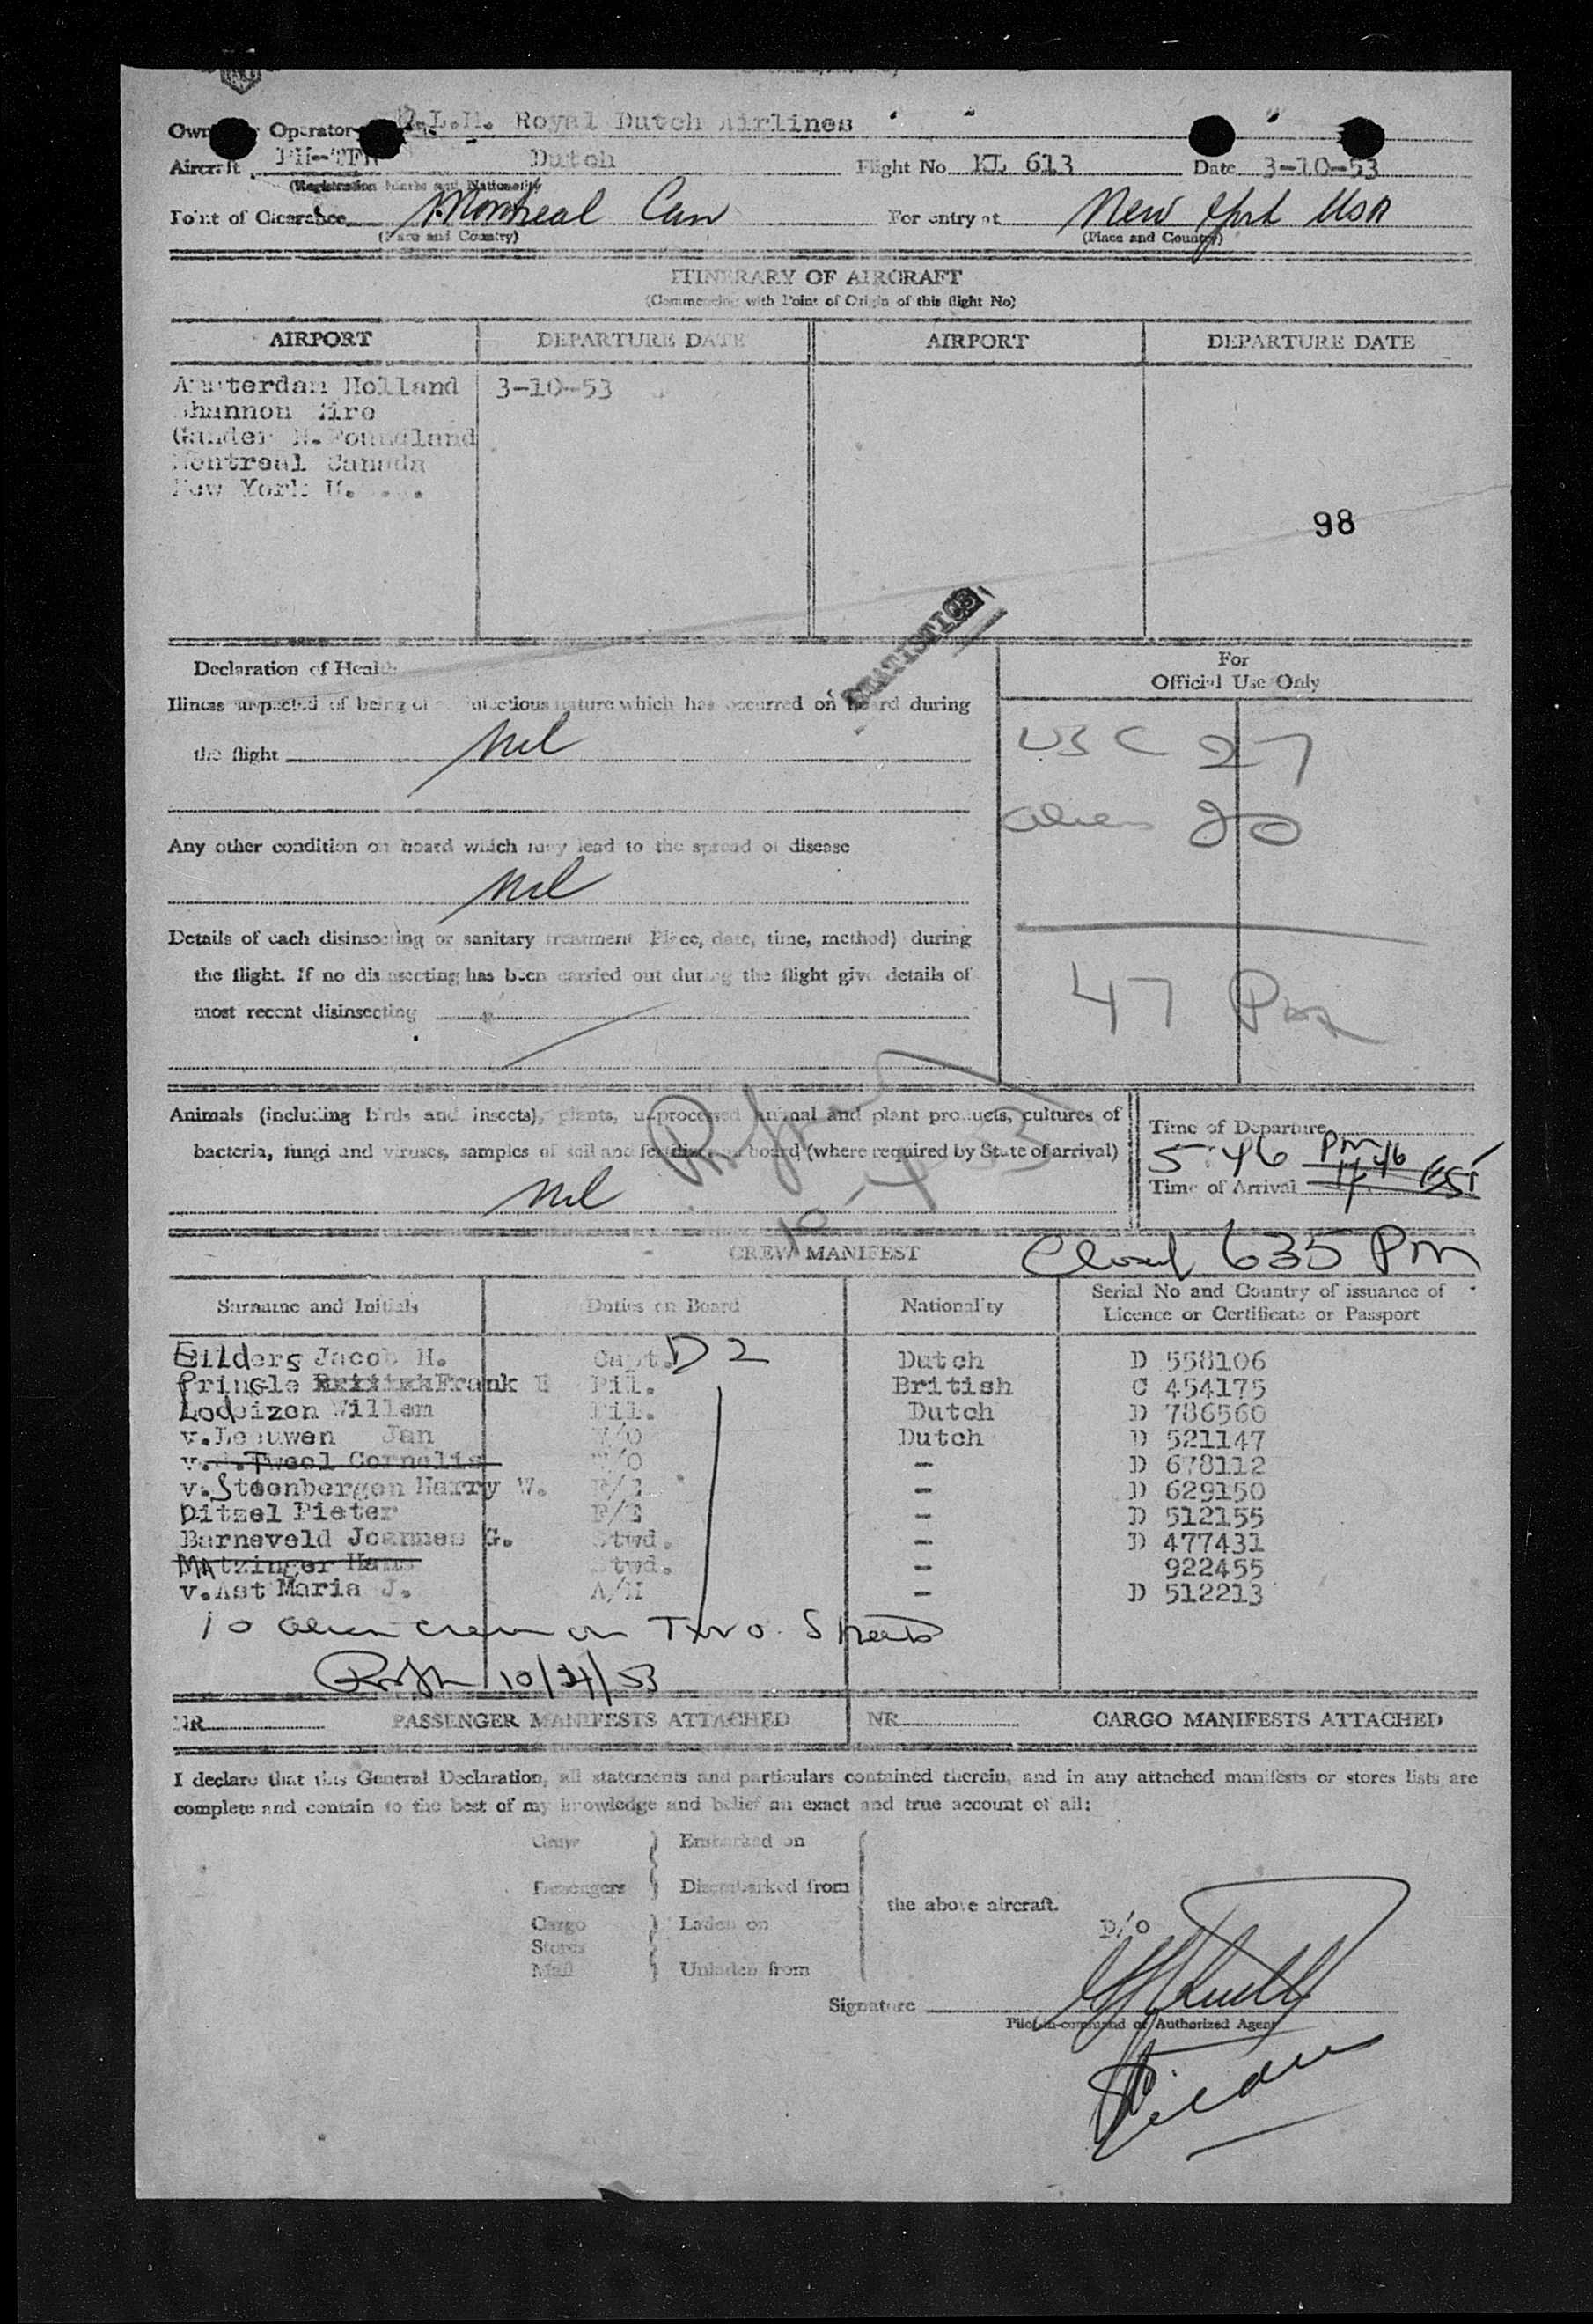 K.L.M. Royal Dutch Airlines
Operator
Aircraft Dutch Flight No KL 613 Date 3-10-53
(Registration Marks and Nationality)
Point of Clearance Montreal Can For entry at New York USA
(Place and Country) (Place and Country)
ITINERARY OF AIRCRAFT
(Commencing with Point of Origin of this flight No)
AIRPORT DEPARTURE DATE AIRPORT DEPARTURE DATE
Amsterdam Holland 3-10-53
Shannon Eire
Gander N.Foundland
Montreal Canada
New York U.
98
STATISTICS
Declaration of Health
For
Official Use Only
Illness suspected of being of an infectious nature which has occurred on board during
the flight Nil
USC 27
Alien 20
Any other condition on board which may lead to the spread of disease
Nil
Details of each disinsecting or sanitary treatment Place, date, time, method) during
the flight. If no disinsecting has been carried out during the flight give details of
most recent disinsecting
47 Pm
Animals (including birds and insects), plants, unprocessed animal and plant products, cultures of
bacteria, fungi and viruses, samples of soil and (where required by State of arrival)
Nil
10-4-53
Time of Departure
5:46 PM EST
Time of Arrival
CREW MANIFEST Closed 635 PM
Surname and Initials Duties on Board Nationality Serial No and Country of issuance of
Licence or Certificate or Passport
Eilders Jacob H. Capt. D2 Dutch D 558106
Pringle Frank E Pil. British C 454175
Lodeizen Willem Pil. Dutch D 786560
v.Leeuwen Jan Dutch D 521147
Tweel Cornelis - D 678112
v.Steenbergen Harry W. - D 629150
Ditzel Pieter F/E - D 512155
Barneveld Joannes G. Stwd. - D 477431
Matzinger Hans Stwd. 922455
v.Ast Maria J. A/H - D 512213
10 alien crew on Two Sheets
10/4/53
NR PASSENGER MANIFESTS ATTACHED NR CARGO MANIFESTS ATTACHED
I declare that this General Declaration, all statements and particulars contained therein, and in any attached manifests or stores lists are
complete and contain to the best of my knowledge and belief an exact and true account of all:
Crew Embarked on
Passengers Disembarked from
the above aircraft.
Cargo Laden on
Stores
Mail Unladen from
D/O
Signature
Pilot-in-command or Authorized Agent
Eilders